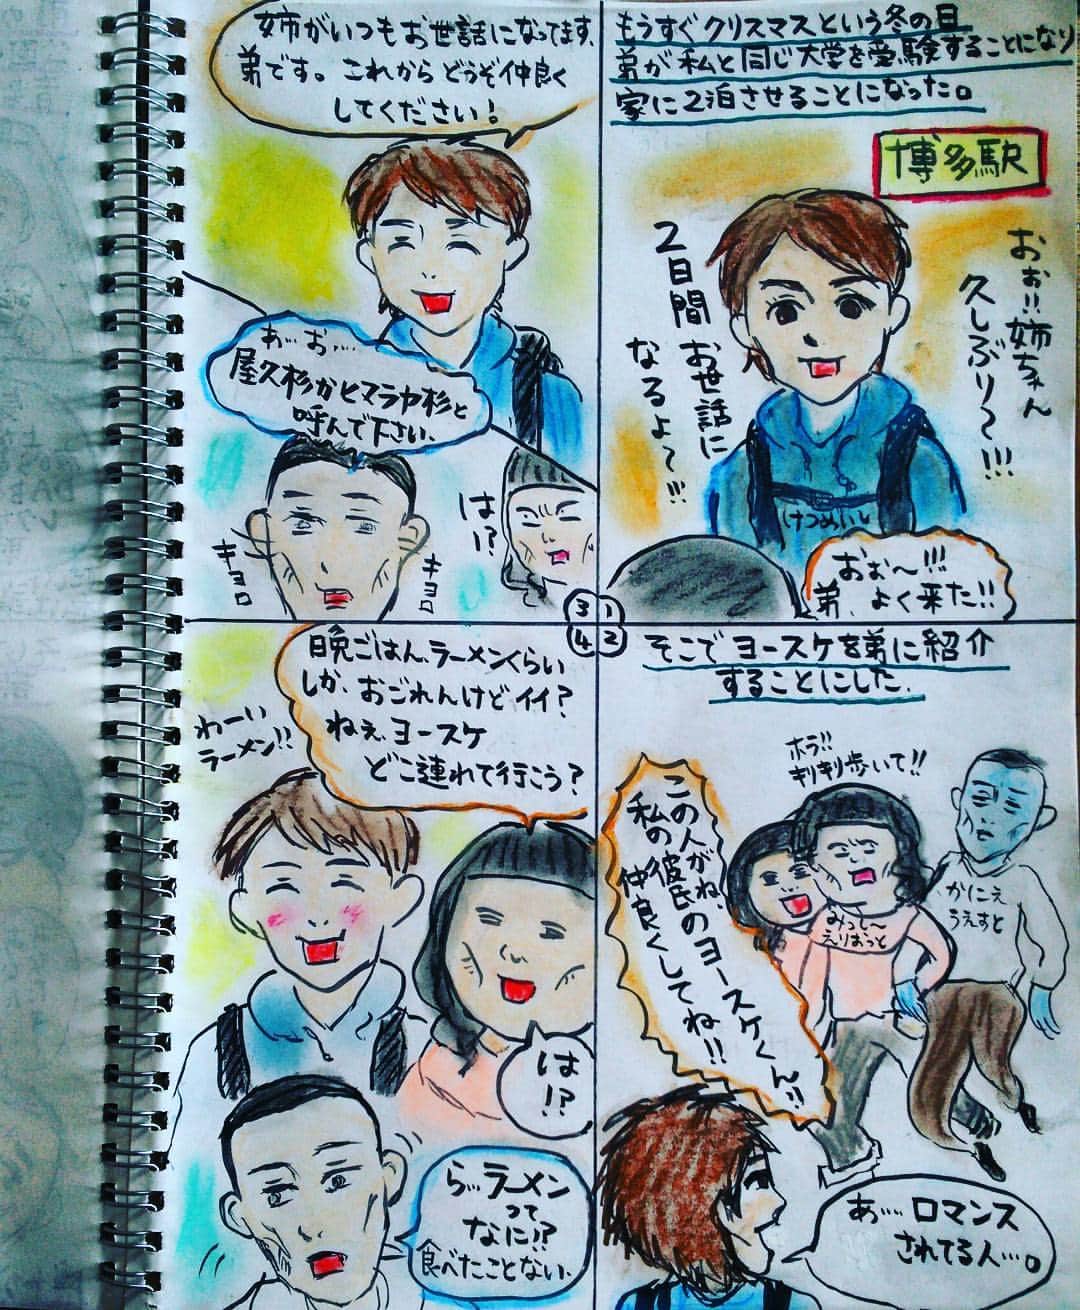 もうすぐクリスマスという冬の日
弟が私と同じ大学を受験することになり
家に2泊させることになった。
博多駅
おぉ!!姉ちゃん
久しぶり〜!!!
2日間お世話に
なるよ〜!!!
けつめいし
おぉ〜!!!
弟、よく来た!!
1
そこでヨースケを弟に紹介
することにした。
2
ホラ!!
判判歩いて!!
この人がね、
私の彼氏のヨースケくん!!
仲良くしてね!!
みっしー
えりおっと
かにえ
うえすと
あ…ロマンス
されてる人…。
姉がいつもお世話になってます、
弟です。これからどうぞ仲良く
してください!
3
あ…お…
屋久杉かヒマラヤ杉と
呼んで下さい。
キョロ
キョロ
は!?
4
晩ごはん、ラーメンくらい
しか、おごれんけどイイ?
ねぇ、ヨースケ
どこ連れて行こう?
わーい
ラーメン!!
は!?
ら…ラーメン
って
なに!?
食べたことない。